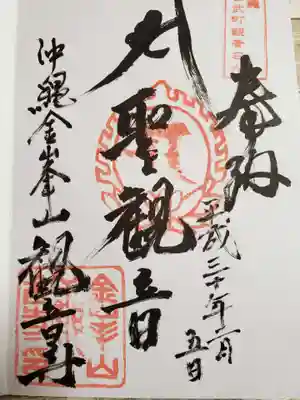 奉拝
平成三十年一月
五日
大聖観音
沖縄金峯山観音寺
金峯山